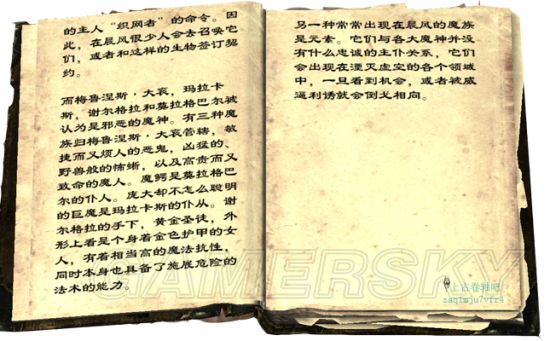 的主人“织网者”的命令。因
此，在晨风很少人会去召唤它
们，或者和这样的生物签订契
约。
而梅鲁涅斯·大衮，玛拉卡
斯，谢尔格拉和莫拉格巴尔被
认为是邪恶的魔神。有三种魔
族归梅鲁涅斯·大衮管辖，敏
捷而又烦人的恶鬼，凶猛的、
野兽般的怖蜥，以及高贵而又
致命的魔人。魔鳄是莫拉格巴
尔的仆人。庞大却不怎么聪明
的巨魔是玛拉卡斯的仆从。谢
尔格拉的手下，黄金圣徒，外
形上看是个身着金色护甲的女
人，有着相当高的魔法抗性，
同时本身也具备了施展危险的
法术的能力。
另一种常常出现在晨风的魔族
是元素。它们与各大魔神并没
有什么忠诚的主仆关系，它们
会出现在湮灭虚空的各个领域
中，一旦看到机会，或者被威
逼利诱就会倒戈相向。
GAMERSKY
上古卷轴吧
zaq1mju7vfr4